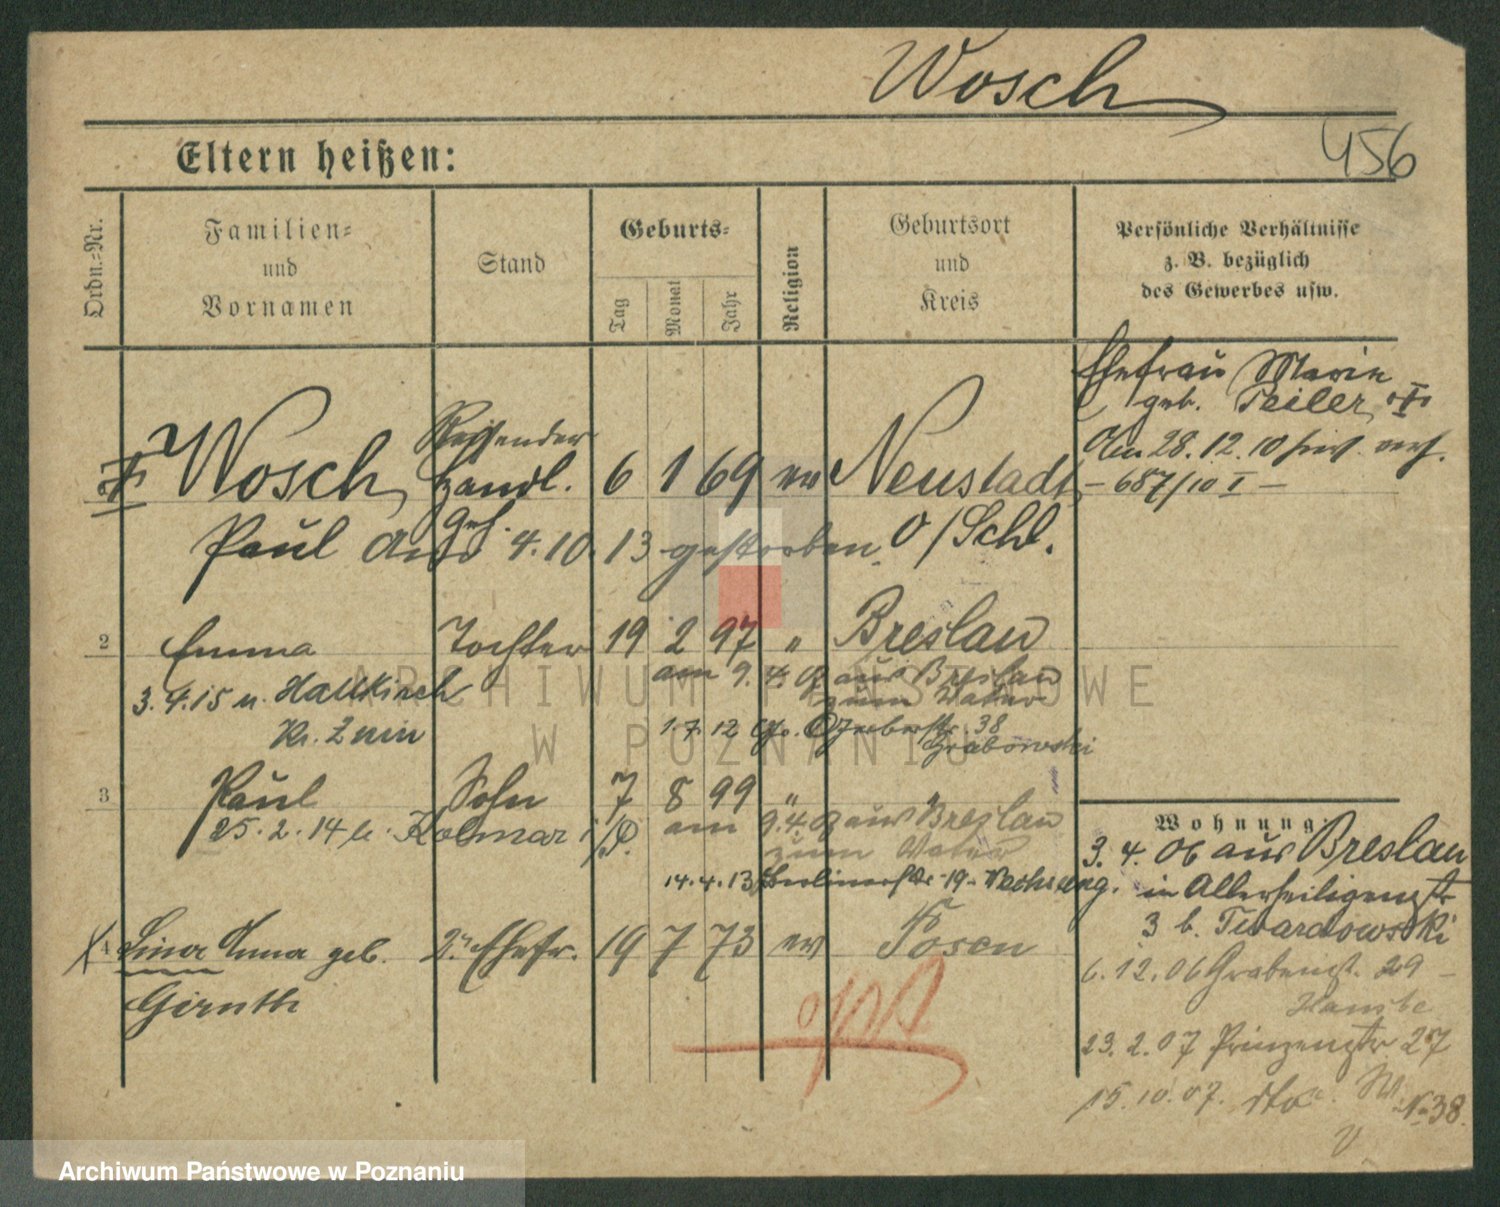 Wosch
456
Eltern heißen:
Ordn.-Nr.
Familien- und Vornamen
Stand
Geburts-
Tag
Monat
Jahr
Religion
Geburtsort und Kreis
Persönliche Verhältnisse z. B. bezüglich des Gewerbes usw.
Ehefrau Marie
geb. Teiler
Am 28. 12. 10
– 687/10 I –
Wosch, Reisender Handl. 6 1 69 ev Neustadt
Paul 4. 10. 13 gestorben. O/Schl.
2 Emma Tochter 19 2 97 " Breslau
am 9. 4. aus Breslau
zum Vater
3. 4. 15 n. Hallkirch
Kr. Znin
1. 7. 12 Gerberstr. 38
Grabowski
3 Paul Sohn 7 8 99 " "
25. 2. 14 Kolmar i/P.
am 9. 4. aus Breslau
zum Vater
14. 4. 13 Berlinerstr. 19
Lina Anna geb. 2. Ehefr. 19 7 73 ev Posen
Girnth
Wohnung:
3. 4. 06 aus Breslau
in Allerheiligenstr
3 b. Twardowski
6. 12. 06 Grabenstr. 29 –
23. 2. 07 Prinzenstr 27
15. 10. 07. dto
No 38.
ARCHIWUM PAŃSTWOWE
W POZNANIU
Archiwum Państwowe w Poznaniu